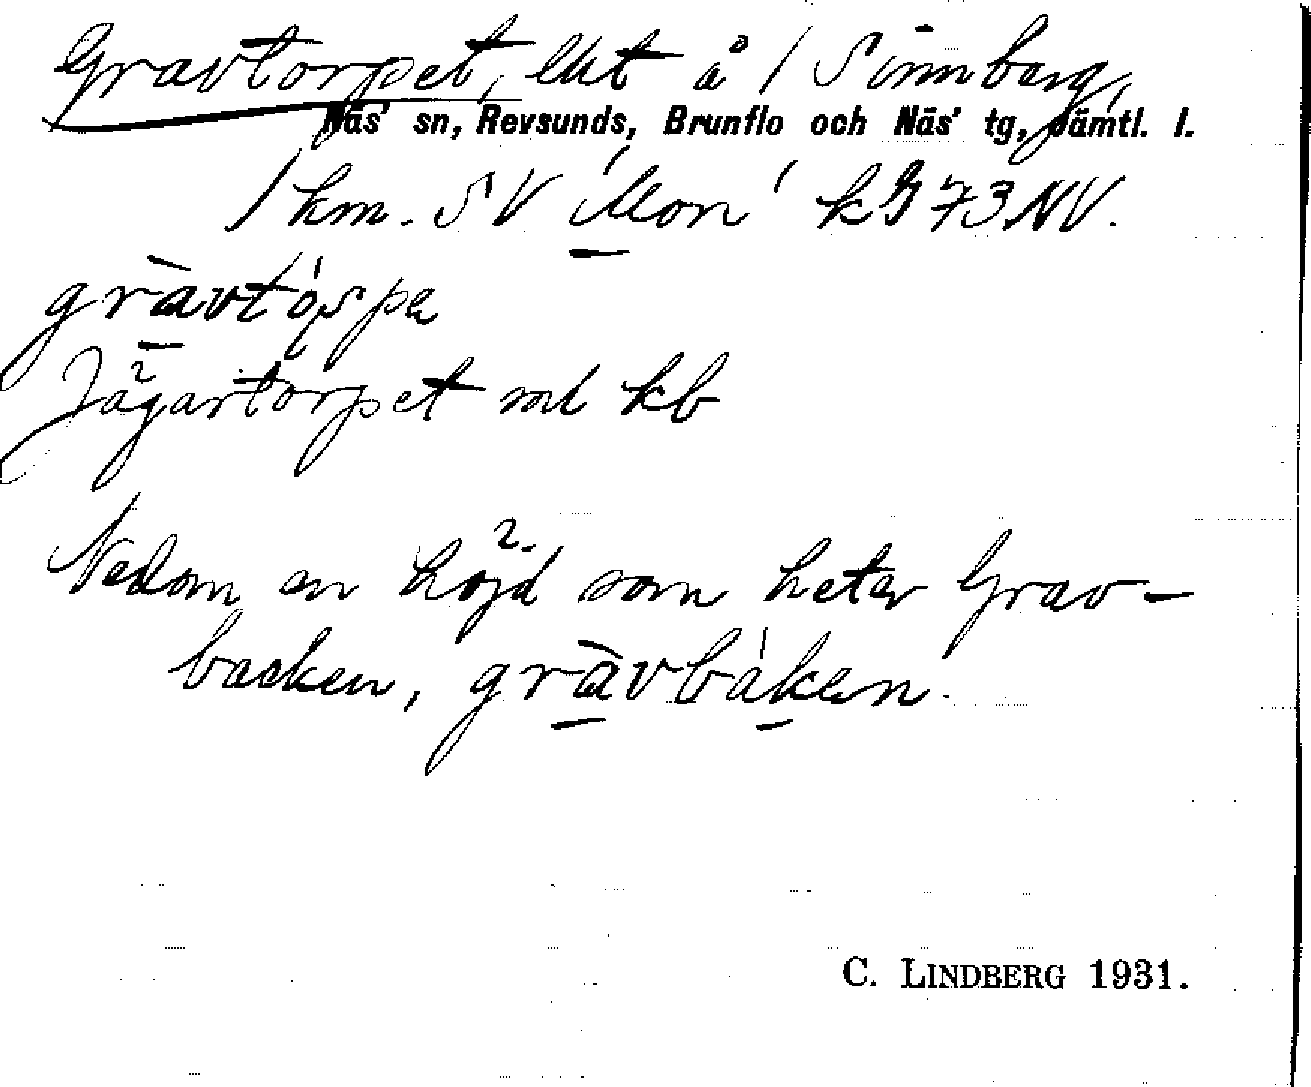 Gravtorpet, lht å 1 Sinnberg,
Näs' sn, Revsunds, Brunflo och Näs' tg, Jämtl. l.
1 km. SV 'Mon' k 73 NV.
gràvtòspa
Jägartorpet ml kb
Nedom en höjd som heter Grav-
backen, gràvbáken.
C. LINDBERG 1931.